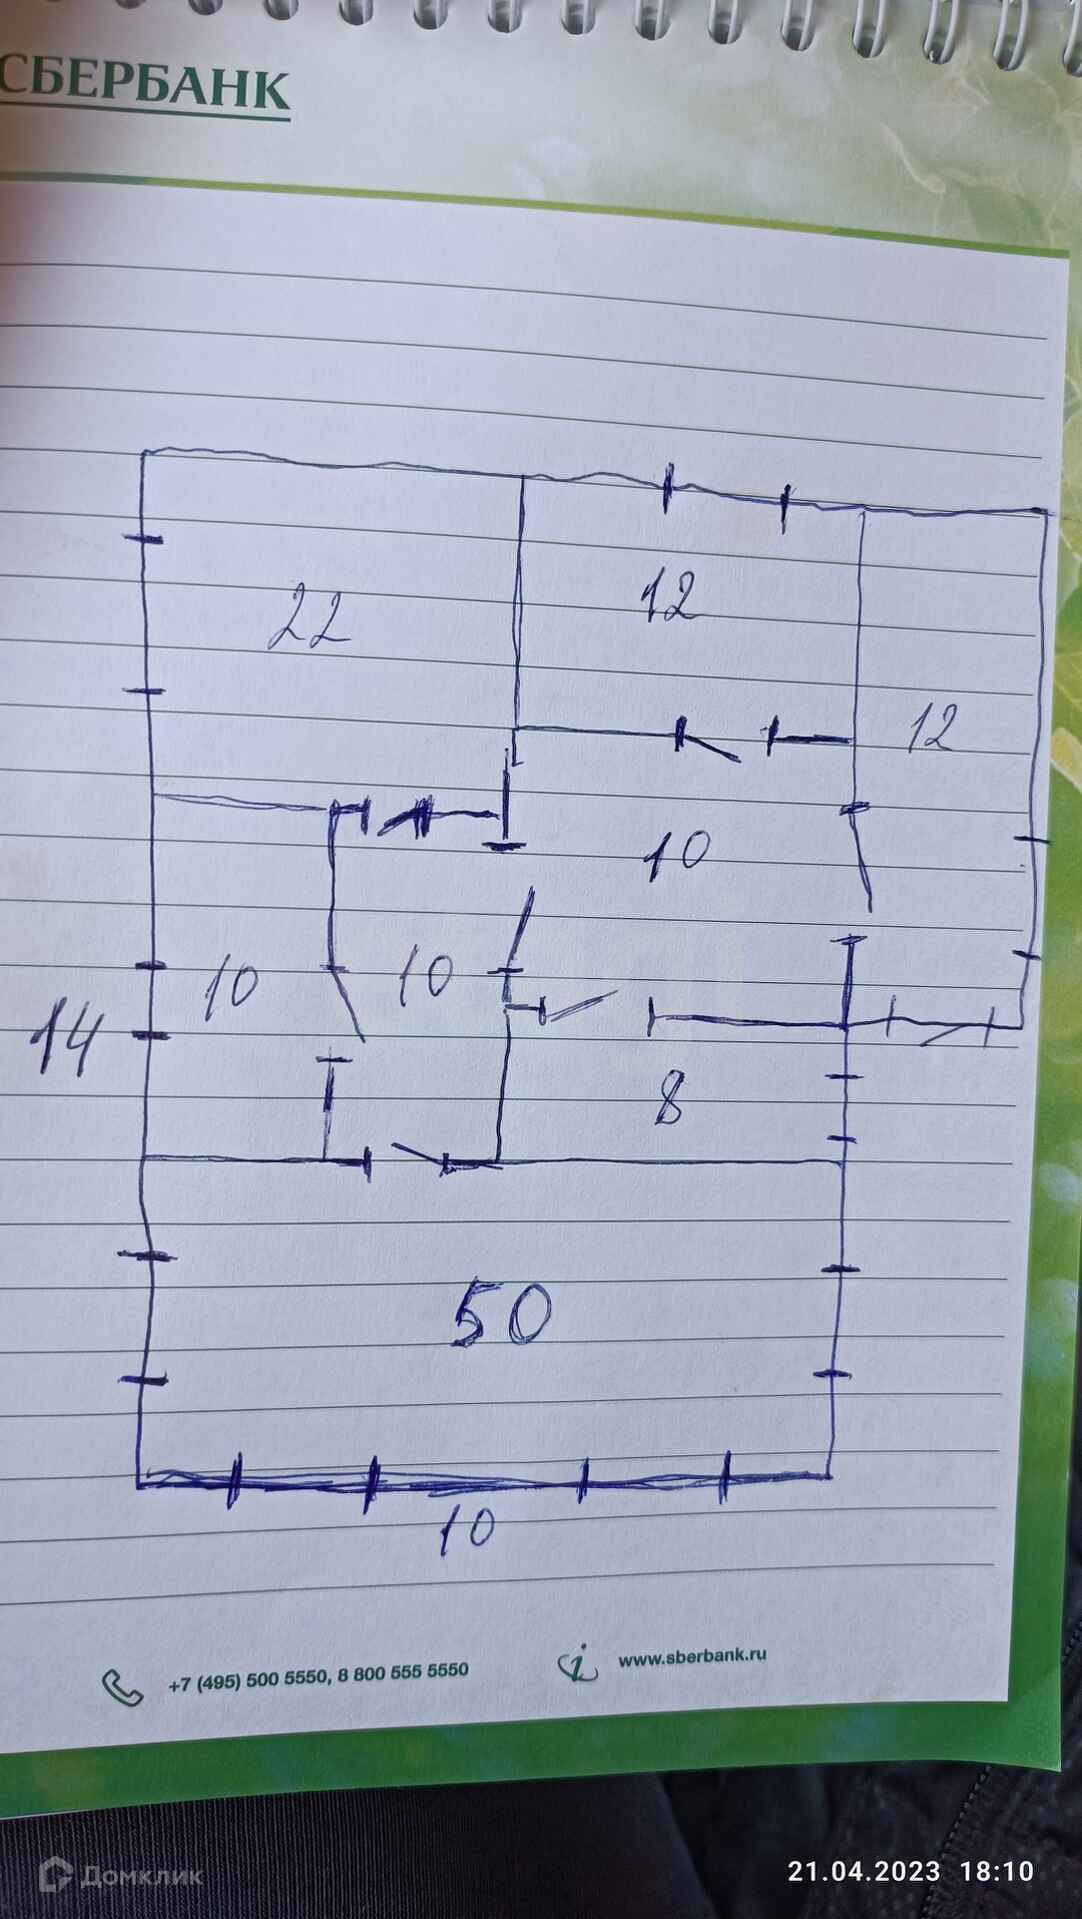 СБЕРБАНК
22
12
12
10
10
10
14
8
50
10
+7 (495) 500 5550, 8 800 555 5550
www.sberbank.ru
Домклик
21.04.2023 18:10